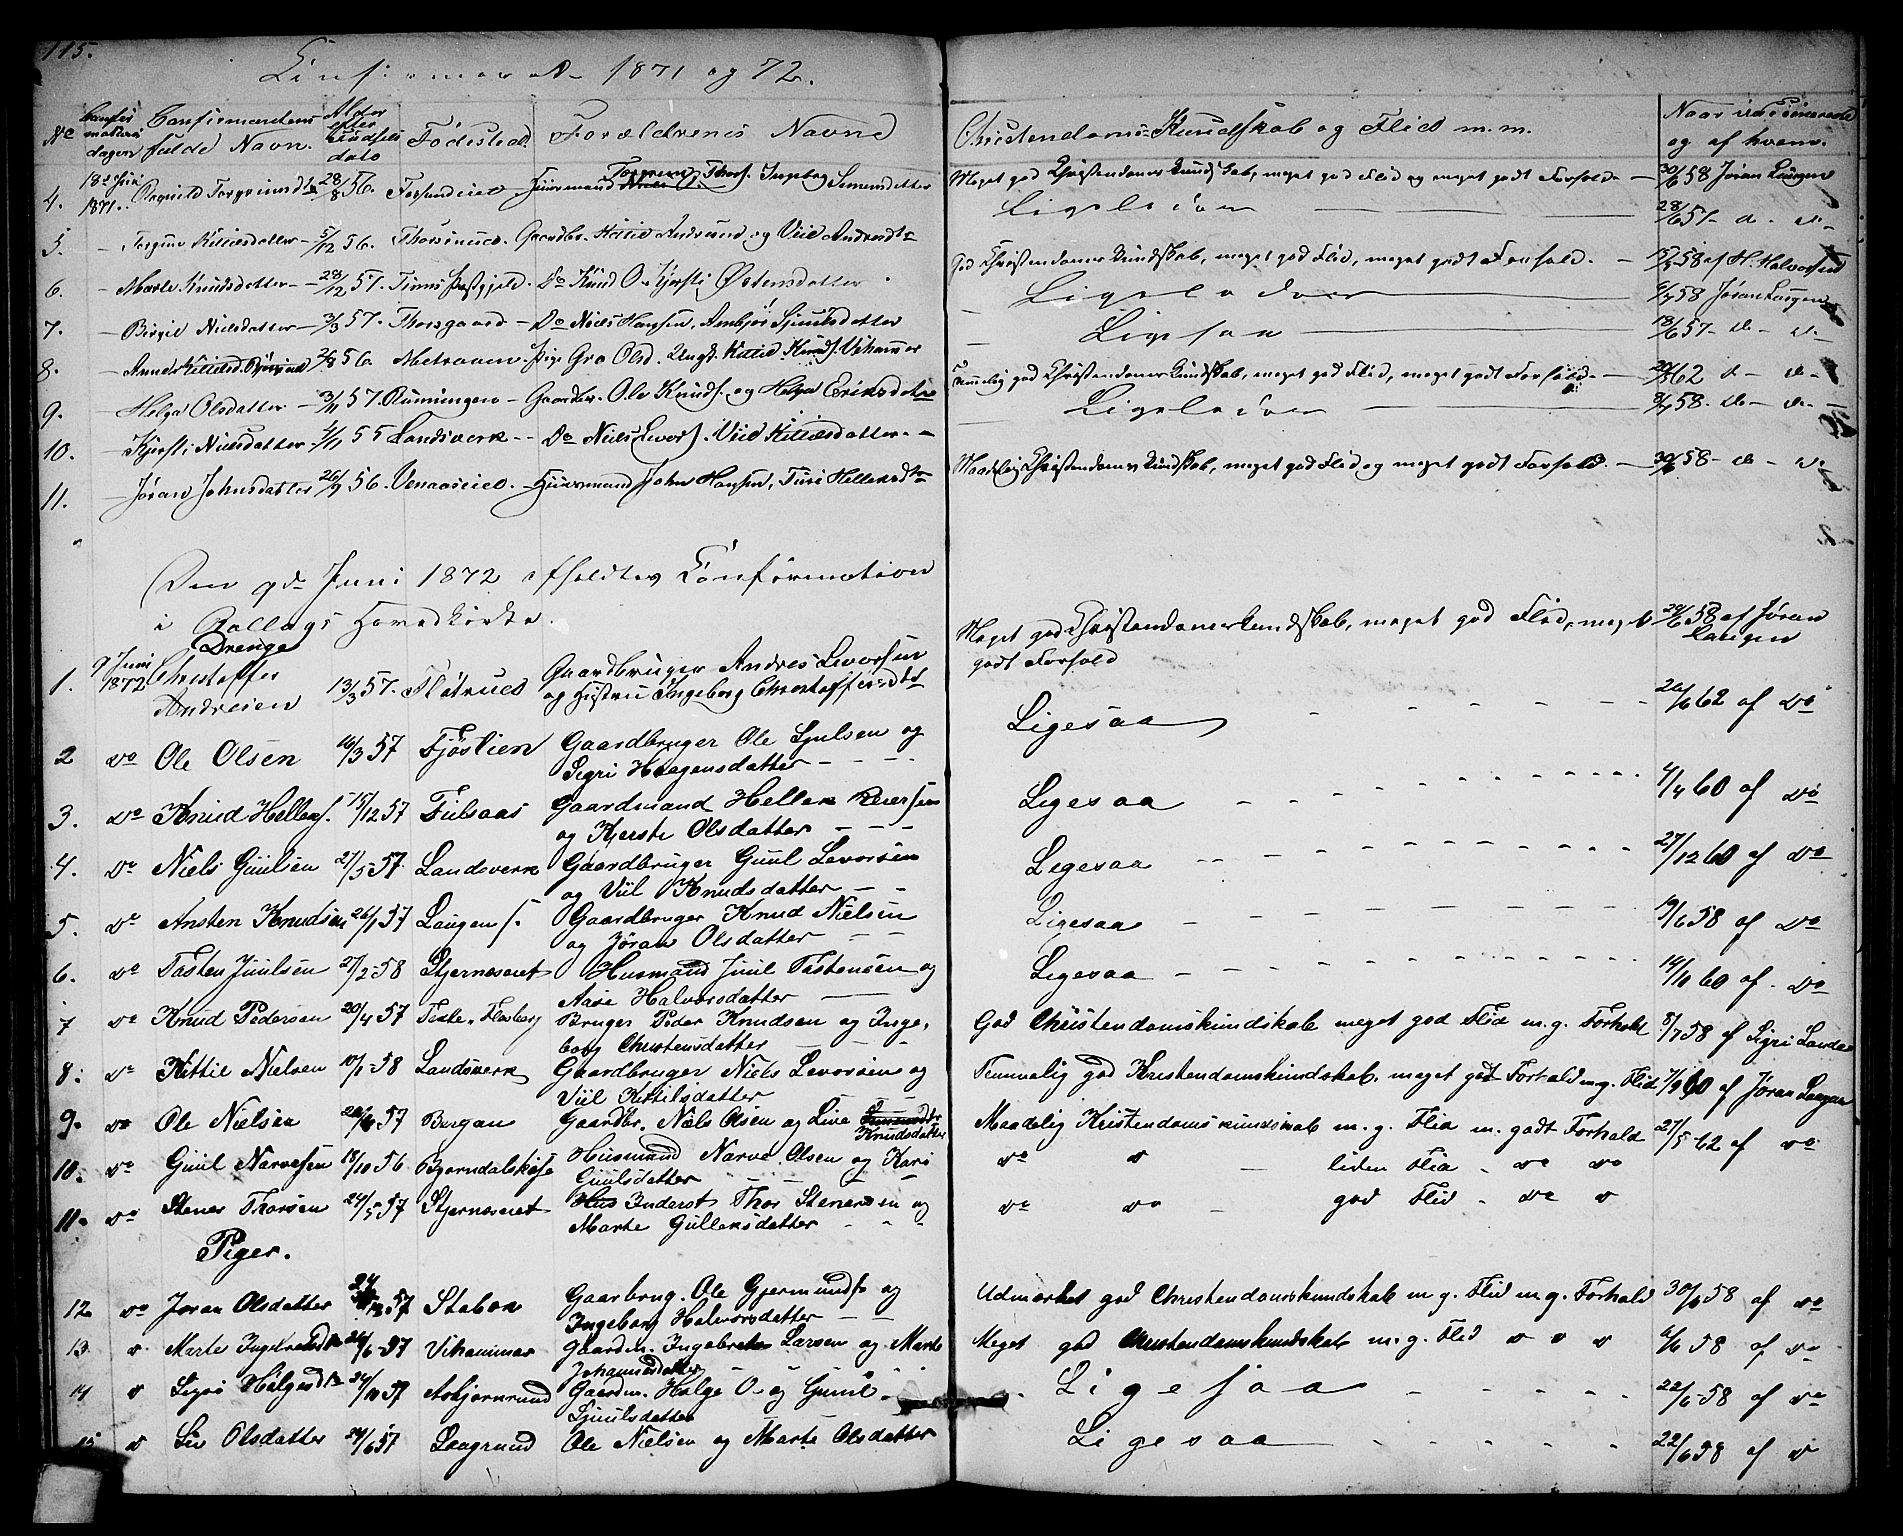 115.
Confirmerede 1871 og 72.
No Confirmations dagen Confirmantens fulde Navn. Alder efter Fødsels dato Fødested. Forældrenes Navne Christendoms-Kundskab og Flid m.m. Naar vaccineerede og af hvem.
4. 18de Juni 1871. Torgrimsdtr 28/8 56. Huusmand Torgrim Thors. Ingebog Simensdatter Meget god Christendomskundskab, meget god Flid og meget godt Forhold — 30/6 58 Jøran Laugen
5. — Torgun Kittilsdatter — 5/12 56. Gaardbr. Kittil Andersund og Viil Andersdtr Ligeledes — 28/6 57 - do - do -
6. — Marte Knudsdatter — 28/12 57. Tinns Prestgjeld. Do Knud O. Kjersti Østensdatter God Christendomskundskab, meget god Flid, meget godt Forhold. — 15/7 58 af H. Halvorsen
7. — Birgit Nielsdatter — 3/3 57. Thorsgaard — Do Niels Hansen, Ambjør Sjuulsdatter — Ligeledes — 6/7 58 Jøran Laugen
8. — Anne Kittilsd. 2/8 56. Metraaen. Pige Gro Olsd. Ungk. Kittil Knuds. Vihammer — Ligesaa — 18/6 57 - do - do -
9. — Helga Olsdatter — 3/11 57. Ruuningen — Gaardbr. Ole Knuds. og Helga Eriksdatter Temmelig god Christendomskundskab, meget god Flid, meget godt Forhold. — 20/8 62 do - do -
10. — Kjersti Nielsdatter 4/11 55 Landsverk — Do Niels Levors. Viil Kittilsdatter. — Ligeledes — 8/7 58. do - do -
11. — Jøran Johnsdatter 26/9 56. Venaaseiet — Huusmand John Hansen, Turi Helleksdtr Maadelig Christendomskundskab, meget god Flid og meget godt Forhold. — 30/6 58 - do - do -
Den 9de Juni 1872 afholdtes Confirmation
i Rollags Hovedkirke.
Drenge
1. 9 Juni 1872 Christoffer Andresen 13/3 57. Gaardbruger Andres Levorsen og Hustru Ingeborg Christoffersdtr Meget god Christendomskundskab, meget god Flid, meget godt Forhold 29/6 58 af Jøran Laugen
2 do Ole Olsen 16/3 57 Fjøslien Gaardbruger Ole Sjulsen og Sigri Haagensdatter - - - - Ligesaa - - - - - - 26/6 62 af do
3. do Knud Helleks. 15/12 57 Fulsaas Gaardmand Hellek Reiersen og Kjersti Olsdatter - - - Ligesaa - - - - - - 4/4 60 af do
4. do Niels Guulsen 27/5 57. Landsverk Gaardbruger Guul Levorsen og Viil Knudsdatter - - Ligesaa - - - - - - 27/12 60 af do
5. do Ansten Knudsen 26/1 57 Laugen s. Gaardbruger Knud Nielsen og Jøran Olsdatter - - Ligesaa - - - - - - 19/6 58 af do
6. do Tosten Juulsen 27/2 58 Stjernesæret Husmand Juul Tostensen og Aase Halvorsdatter — Ligesaa - - - - - - 14/10 60 af do
7 do Knud Pedersen 20/4 57 Flesberg Bruger Peder Knudsen og Ingeborg Christensdatter - - God Christendomskundskab meget god Flid m.g. Forhold 8/7 58 af Sigri Landse
8. do Kittil Nielsen 10/1 58 Landsverk Gaardbruger Niels Levorsen og Viil Kittilsdatter - Temmelig god Kristendomskundskab, meget godt Forhold m.g. Flid 7/9 60 af Jøran Laugen
9. do Ole Nielsen 57 Bergan Gaardbr. Niels Olsen og Live Knudsdatter Maadelig Kristendomskundskab m.g. Flid m. godt Forhold 27/5 62 af do
10. do Guul Narvesen 18/10 56 Bjørndalskåse Husmand Narve Olsen og Kari Guulsdatter - - - do do — liden Flid - do do
11. do Stener Thorsen 24/5 57 Stjernesæret Hus Inderst Thor Stenersen og Marte Gulleksdatter - - - do do — god Flid - do do
Piger.
12 do Joran Olsdatter 24/12 57 Stabon Gaarbrug. Ole Gjermunds. og Ingeborg Halvorsdatter — Udmerket god Christendomskundskab m.g. Flid m.g. Forhald 30/6 58 af do
13 do Marte Ingebretsdtr 24/6 57 Vihammer Gaardm. Ingebret Larsen og Marte Johannesdatter Meget god Christendomskundskab m.g. Flid do do do 6/6 58 af do
14 do Sigri Helgesdtr 24/10 57 Asbjornrund Gaardm. Helge O. og Gunil Sjuulsdatter Ligesaa - - - - - 22/6 58 af do
15 do Liv Olsdatter 24/6 57 Laagrund Ole Nielsen og Marte Olsdatter Ligesaa - - - - - 22/6 58 af do